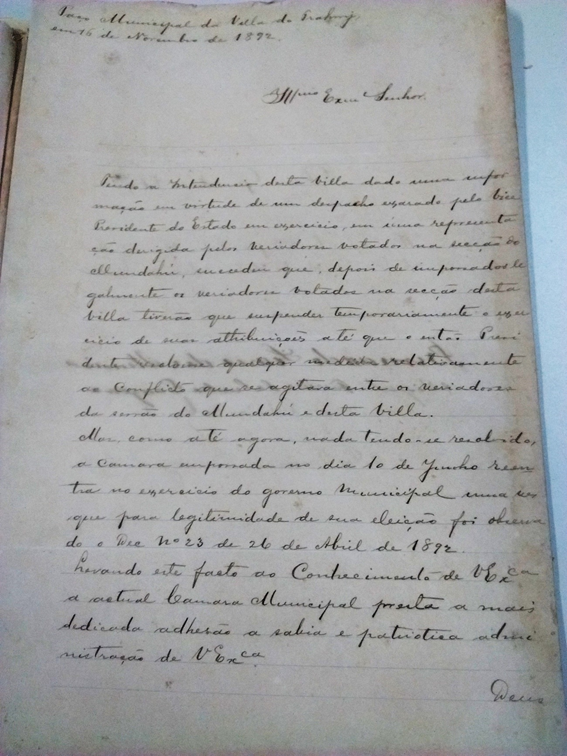 Paço Municipal da Villa do Trahiry
em 16 de Novembro de 1892.
Illmo Exmo Senhor.
Tendo a Intendencia desta Villa dado uma infor
mação em virtude de um despacho exarado pelo Vice
Presidente do Estado em exercicio, em uma representa
ção dirigida pelos veriadores votados na secção do
Mundahú, succedeu que, depois de impossados le
galmente os veriadores votados na secção desta
Villa tiverão que suspender temporariamente o exer
cicio de suas attribuições até que o então Presi
dente relativamente
ao Conflicto que se agitara entre os veriadores
da secção do Mundahú e desta Villa.
Mas, como até agora, nada tendo-se resolvido,
a Camara impossada no dia 10 de Junho reen
tra no exercicio do governo Municipal uma vez
que para legitimidade de sua eleição foi observa
do o Dec Nº 23 de 26 de Abril de 1892.
Levando este facto ao Conhecimento de VExca
a actual Camara Municipal presta a mais
dedicada adhesão a sabia e patriotica admi
nistração de VExca.
Deus